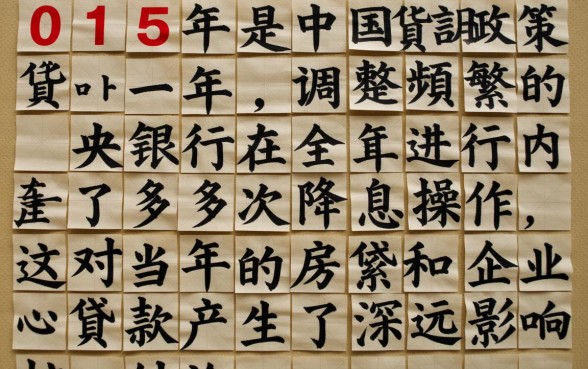 015年是中国貨政策
貨一年，调整頻繁的
央银行在全年进行内
了多多次降息操作，
这对当年的房和企业
心貸款产生了深远影响